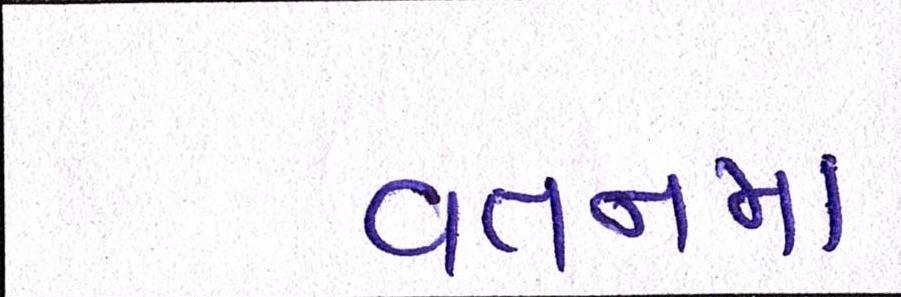 વતનમા